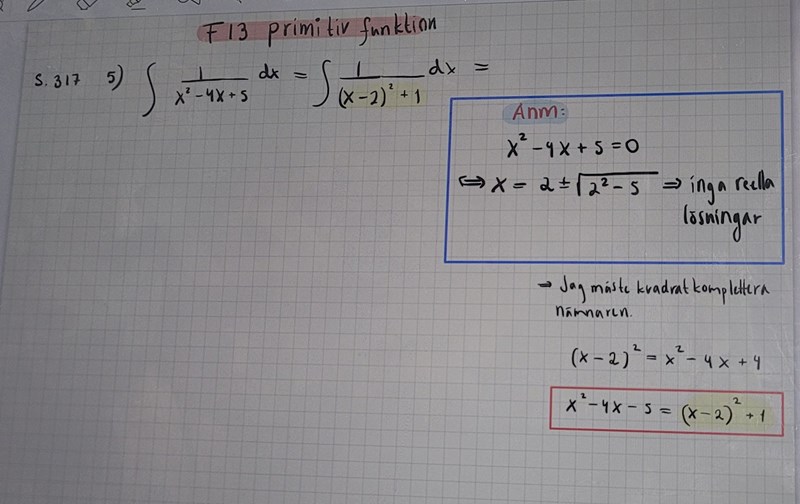 F13 primitiv funktion
S. 317 5) ∫ 1/(x² - 4x + 5) dx = ∫ 1/((x-2)² + 1) dx =
Anm:
x² - 4x + 5 = 0
⟺ x = 2 ± √(2² - 5) ⇒ inga reella
lösningar
→ Jag måste kvadratkomplettera
nämnaren.
(x-2)² = x² - 4x + 4
x² - 4x - 5 = (x-2)² + 1